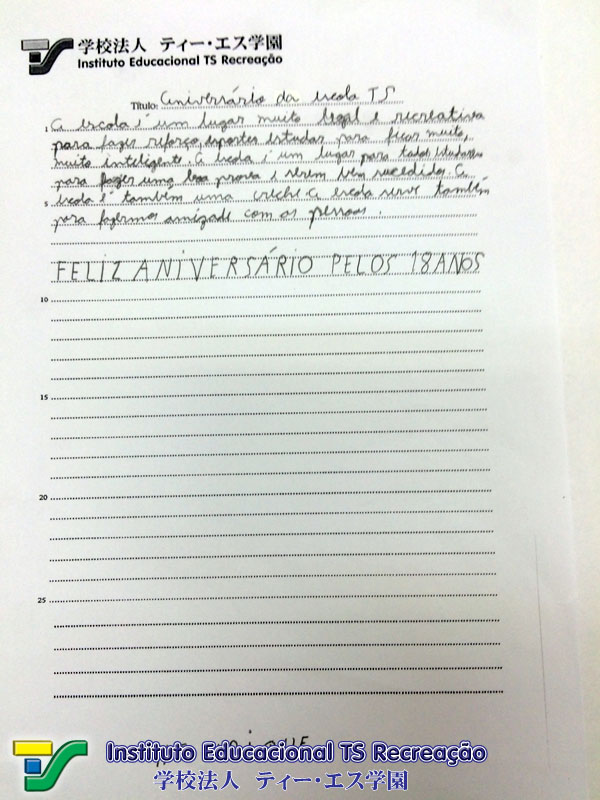 学校法人 ティー・エス学園
Instituto Educacional TS Recreação
Título: Aniversário da escola TS
1 A escola é um lugar muito legal e recreativa
para fazer reforço, esportes estudar para ficar muito,
muito inteligente. A escola é um lugar para todos
para fazer uma boa prova e serem bem sucedidos. A
5 escola é também uma creche a escola serve também
para fazermos amizade com as pessoas.
FELIZ ANIVERSÁRIO PELOS 18 ANOS
10
15
20
25
Instituto Educacional TS Recreação
学校法人 ティー・エス学園